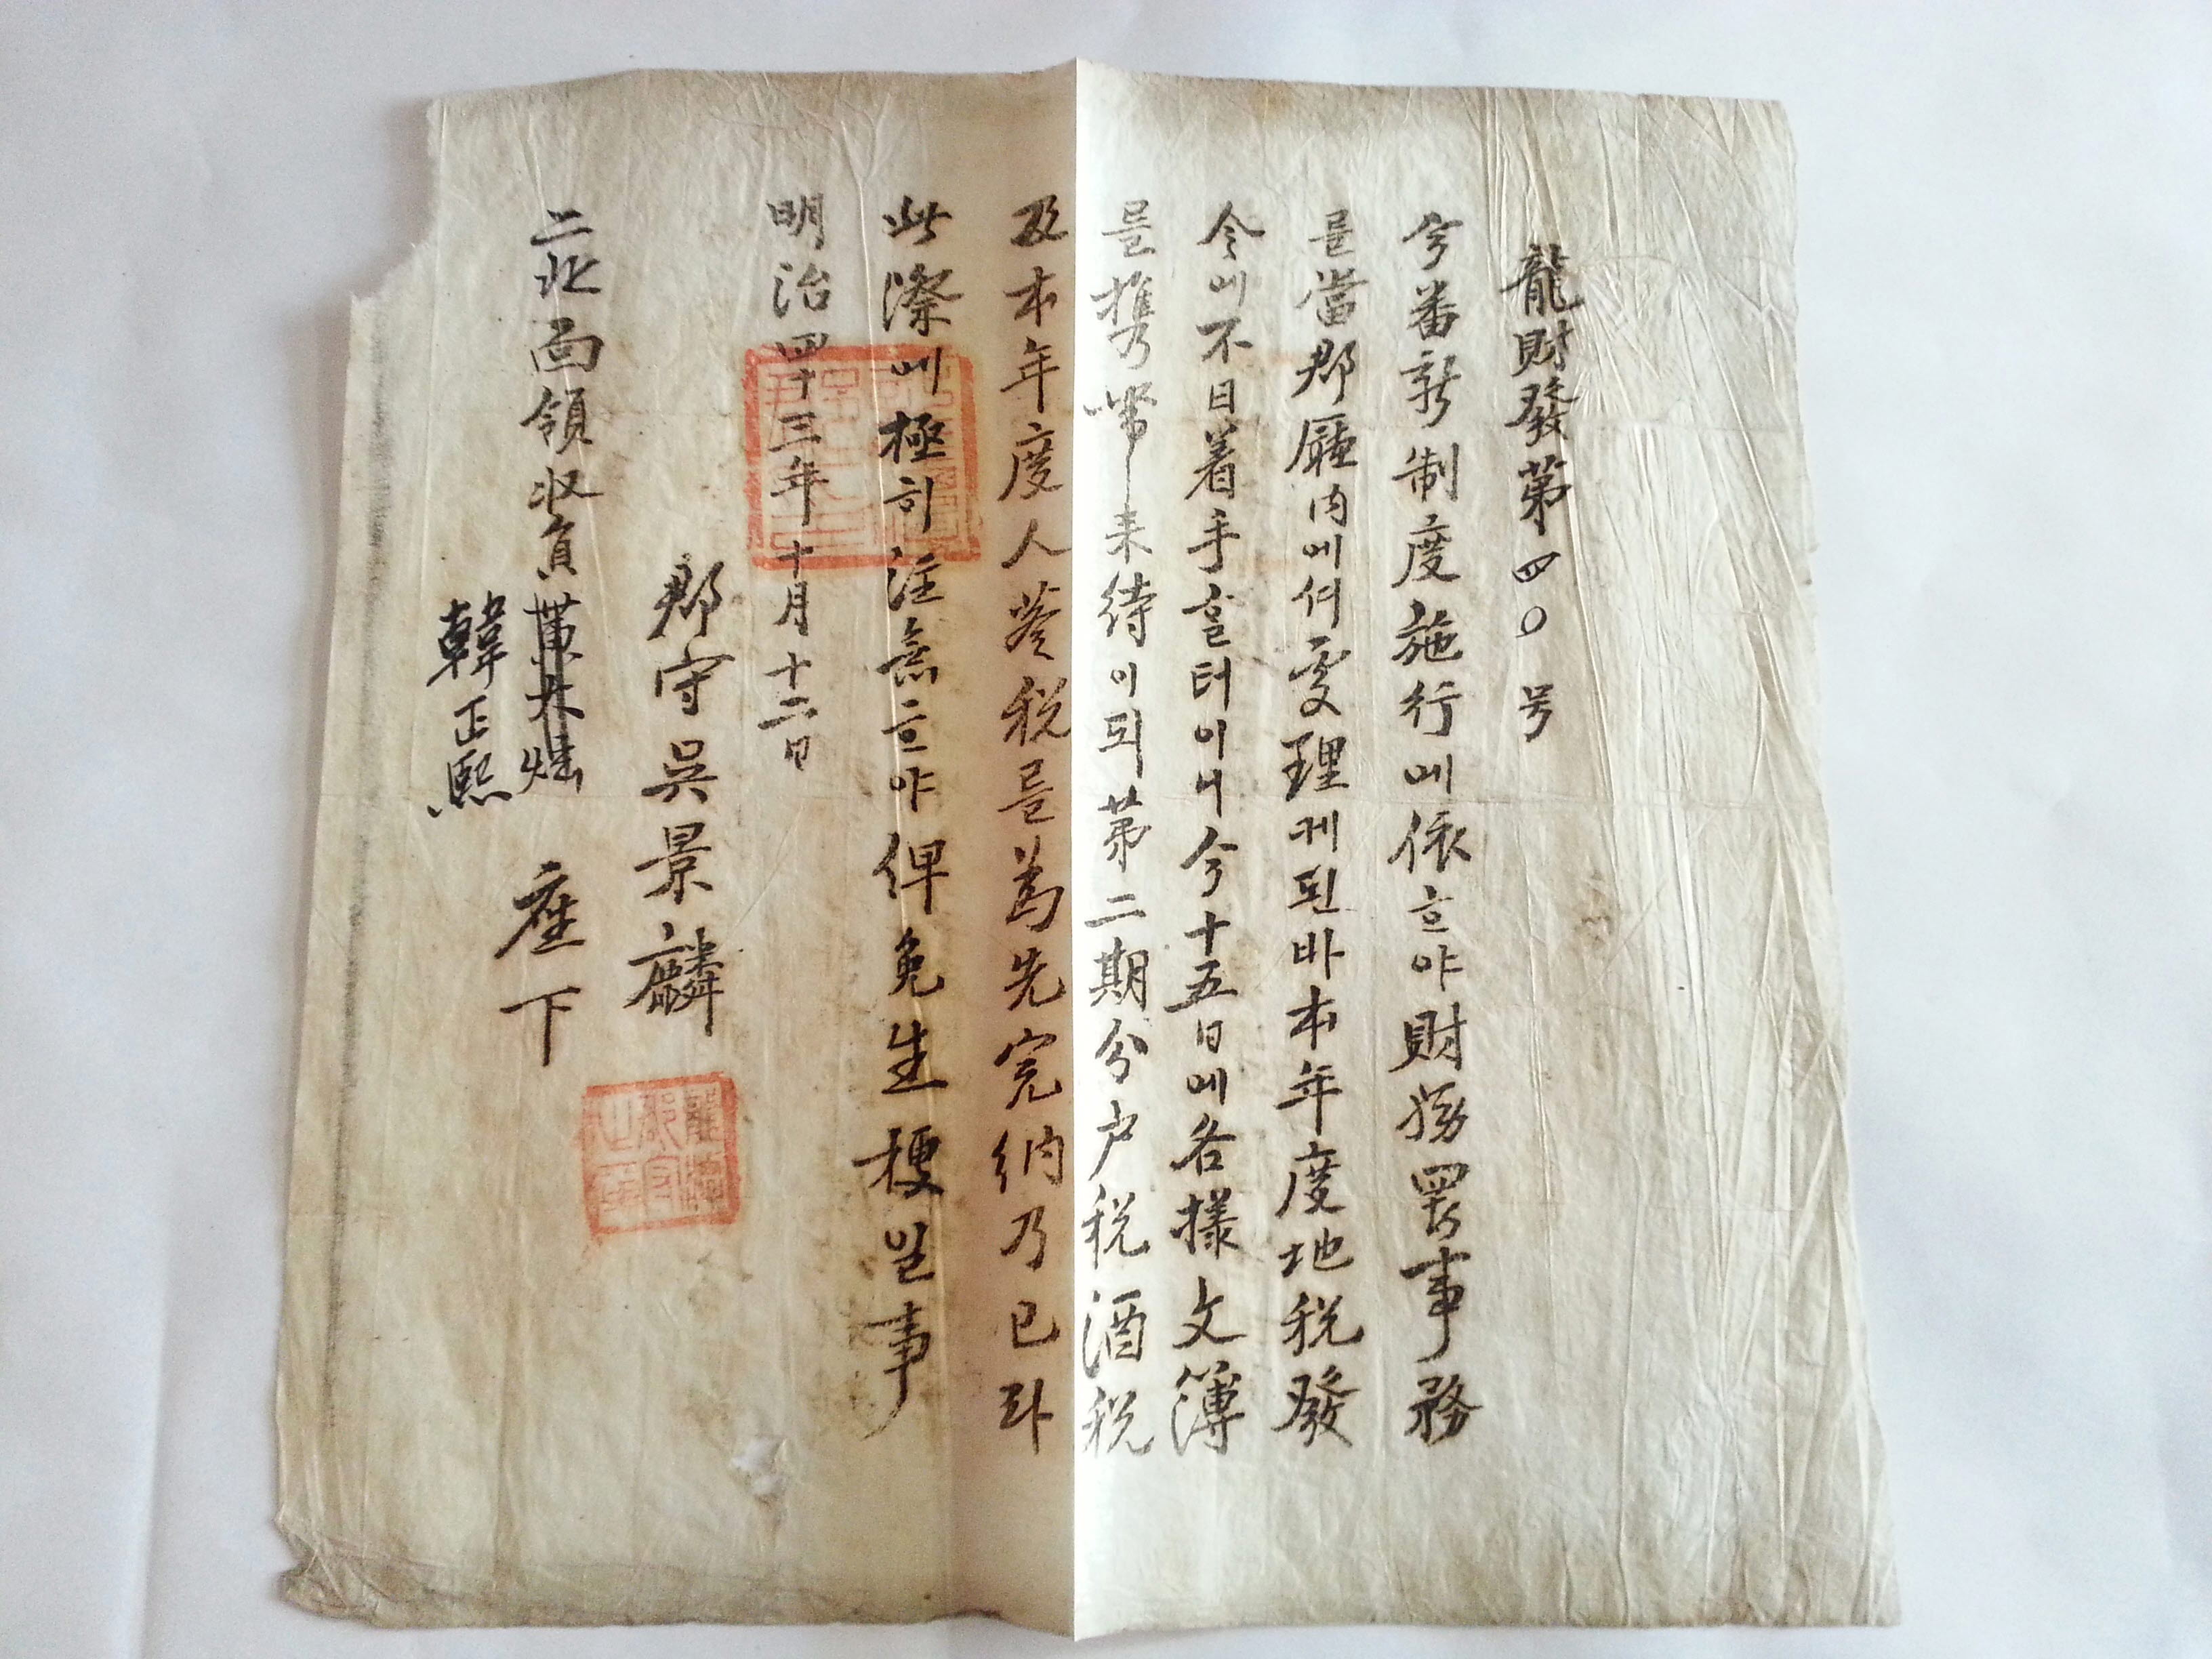 龍財發第四〇号
今番新制度施行에依ᄒᆞ야財務署事務
를當郡廳內에셔處理케된바本年度地稅發
令에不日着手ᄒᆞᆯ터이니今十五日에各樣文簿
를携帶来待이되第二期分户稅酒稅
及本年度人蔘稅를爲先完納乃已라
此際에極히注意ᄒᆞ야俾免生梗ᄒᆞᆯ事
明治四十三年十月十二日
郡守吳景麟
二北面領収員
韓正熙
座下